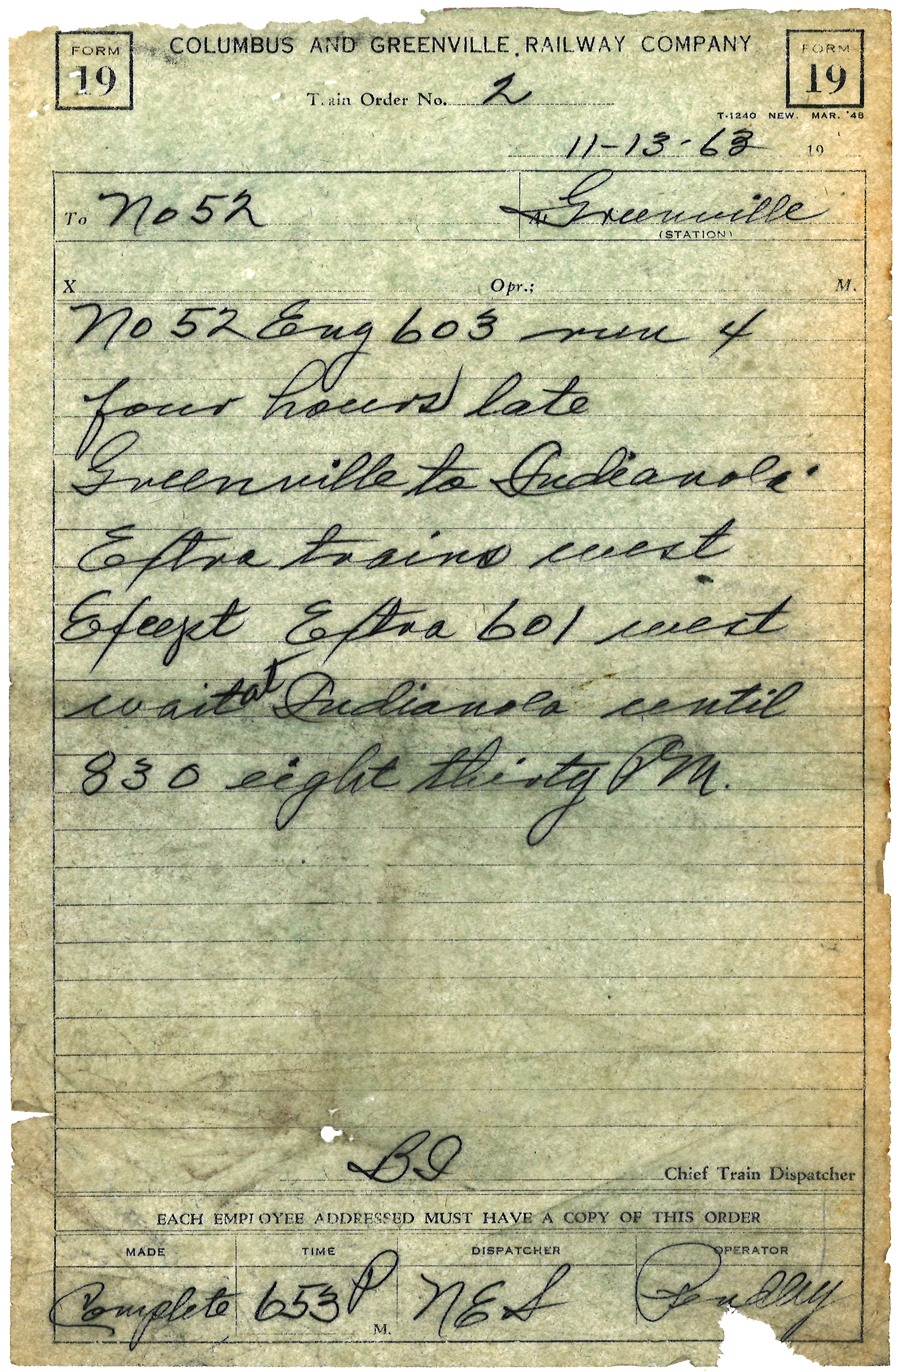 FORM 19 COLUMBUS AND GREENVILLE RAILWAY COMPANY FORM 19
Train Order No. 2
T-1240 NEW. MAR. '48
11-13-63 19
To No 52 At Greenville
(STATION)
X Opr.; M.
No 52 Eng 603 run 4
four hours late
Greenville to Indianola.
Extra trains west
Except Extra 601 west
wait at Indianola until
830 eight thirty PM.
BI Chief Train Dispatcher
EACH EMPLOYEE ADDRESSED MUST HAVE A COPY OF THIS ORDER
MADE TIME DISPATCHER OPERATOR
Complete 653 P M. NES Pendley